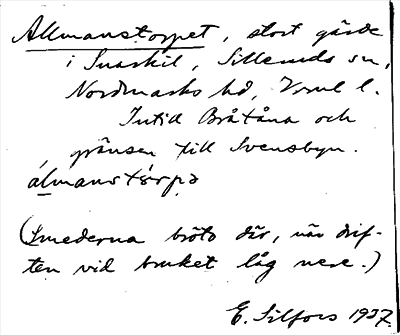 Allmanstorpet, stort gärde
i Snarkil, Silleruds sn,
Nordmarks hd, Vrml l.
Intill Bråtåna och
gränsen till Svensbyn.
álmanstórpə
(Smederna bröto där, när drif-
ten vid bruket låg nere.)
E. Silfors 1937.